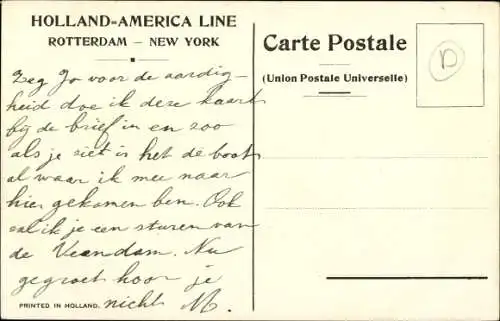 HOLLAND=AMERICA LINE
ROTTERDAM – NEW YORK
Carte Postale
(Union Postale Universelle)
D
Zeg Jo voor de aardig-
heid doe ik deze kaart
bij de brief in en zoo
als je ziet is het de boot
al waar ik mee naar
hier gekomen ben. Ook
zal ik je een sturen van
de Veendam. Nu
gegroet hoor je
nicht M.
PRINTED IN HOLLAND.